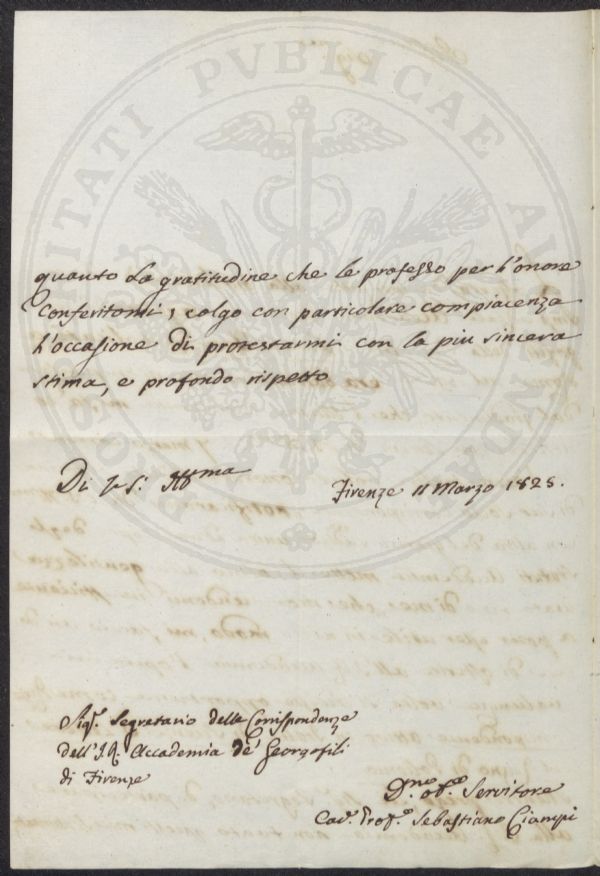 PROSPERITATI PVBLICAE AVGENDAE
quanto la gratitudine che le professo per l'onore
Conferitomi, colgo con particolare compiacenza
l'occasione di protestarmi con la piu sincera
stima, e profondo rispetto
Di VS: Illma
Firenze 11 Marzo 1825.
Sigr Segretario delle Corrispondenze
dell'I.R. Accademia de' Georgofili
di Firenze
Dmo obmo Servitore
Cav. Profe Sebastiano Ciampi